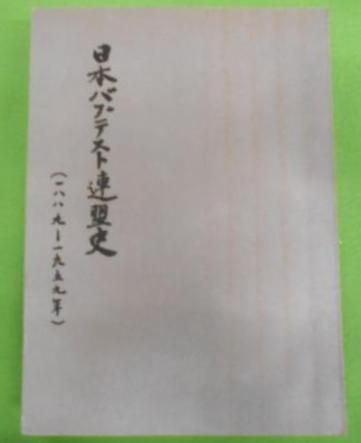 日本バプテスト連盟史
（一八八九ー一九五九年）